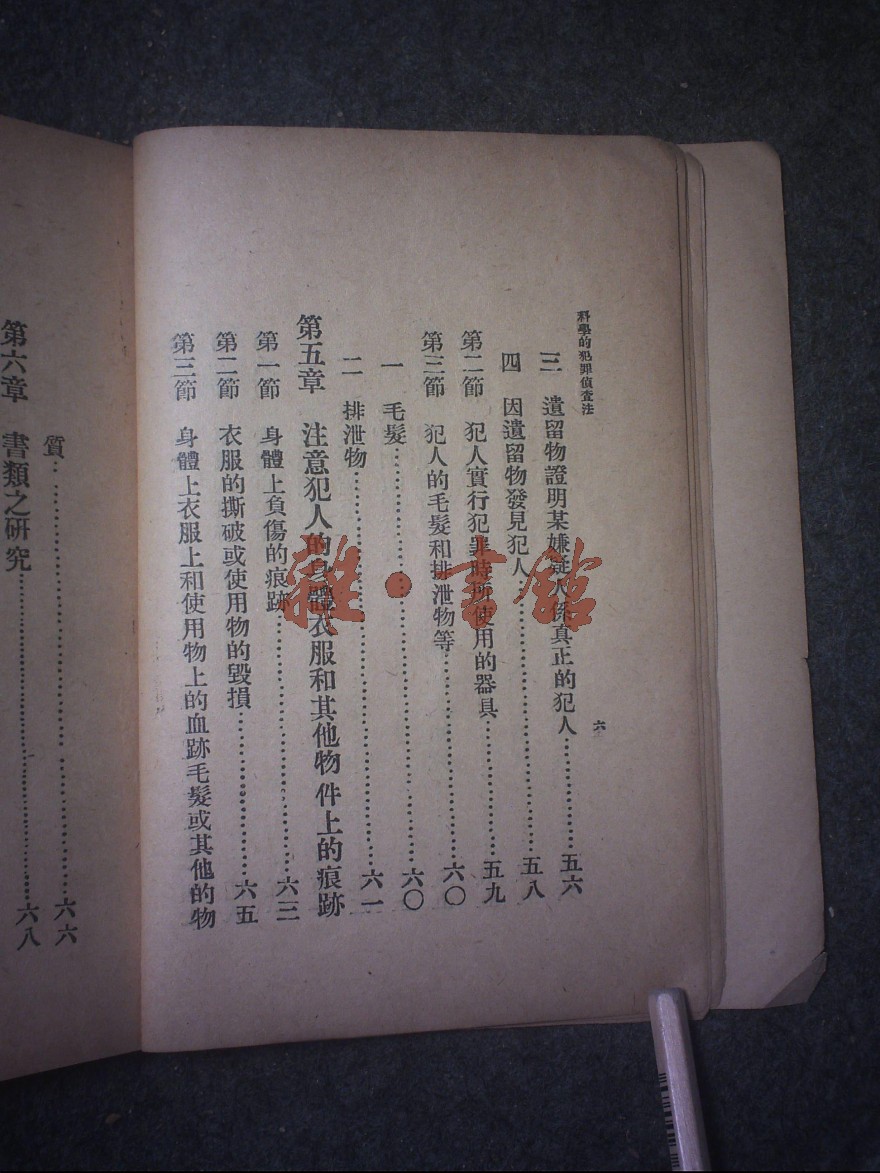 科學的犯罪偵查法
六
三 遺留物證明某嫌疑人係真正的犯人……五六
四 因遺留物發見犯人……五八
第二節 犯人實行犯罪時所使用的器具……五九
第三節 犯人的毛髮和排泄物等……六〇
一 毛髮……六〇
二 排泄物……六一
第五章 注意犯人的身體衣服和其他物件上的痕跡
第一節 身體上負傷的痕跡……六三
第二節 衣服的撕破或使用物的毀損……六五
第三節 身體上衣服上和使用物上的血跡毛髮或其他的物
質……六六
第六章 書類之研究……六八
雜·書館